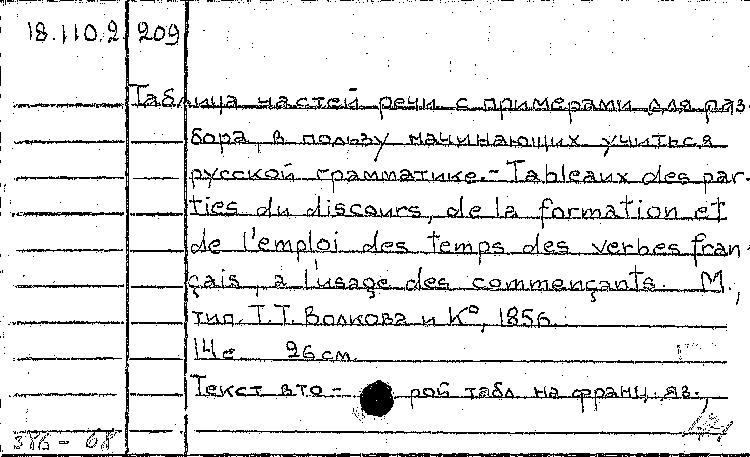 18.110.2 209
Таблица частей речи с примерами для раз-
бора, в пользу начинающих учиться
русской грамматике.- Tableaux des par-
ties du discours, de la formation et
de l'emploi des temps des verbes fran-
çais, a l'usage des commençants. М.,
тип. Т.Т. Волкова и К°, 1856.
14 с 26 см.
Текст вто- рой табл. на франц. яз.,
386 - 68